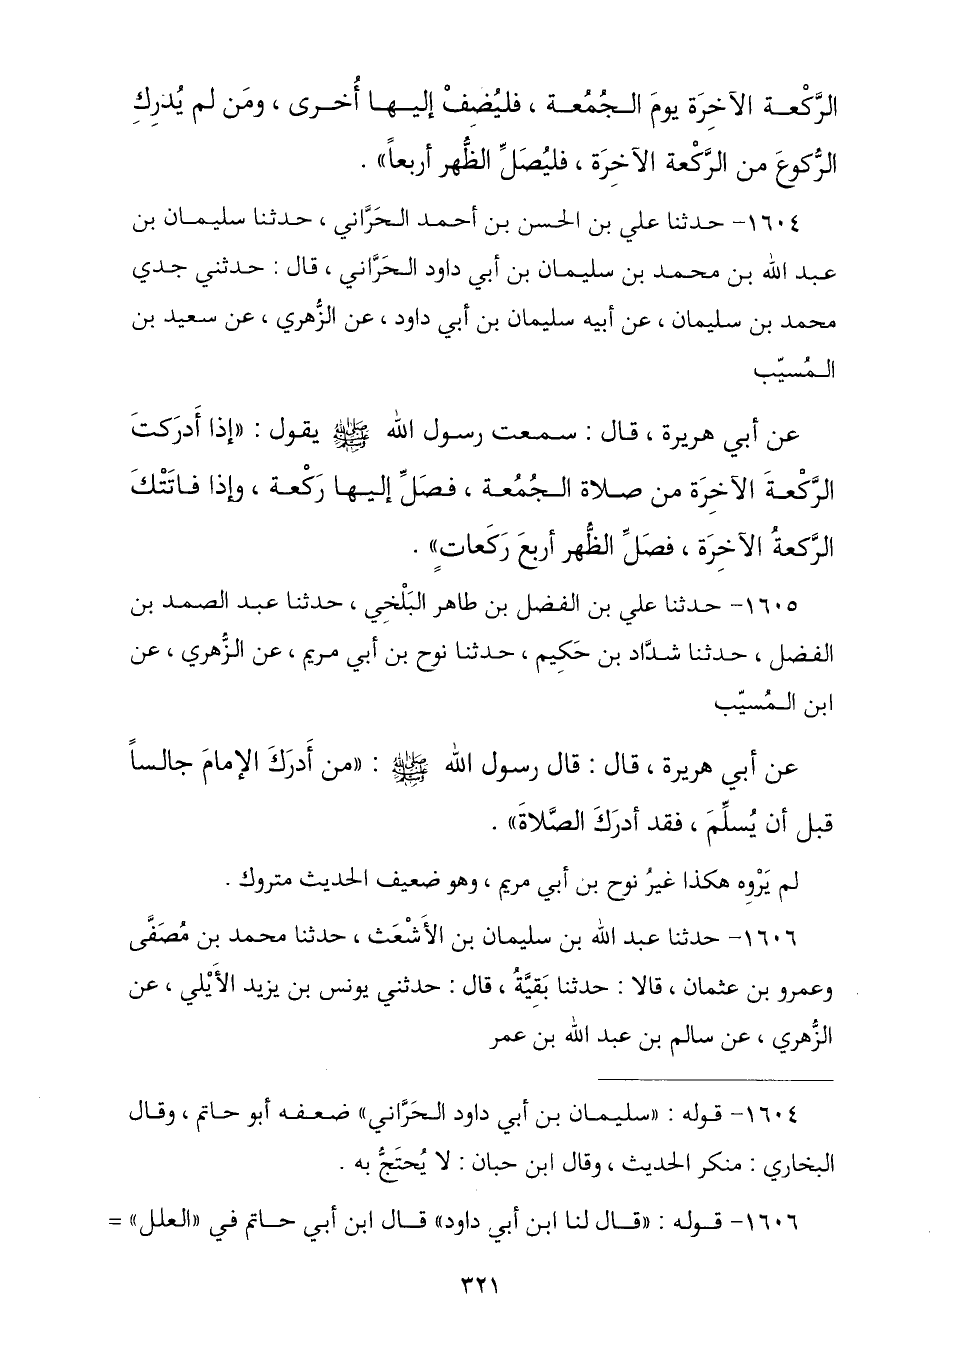 الرَّكْعـة الآخِرَة يومَ الـجُمُعـة ، فليُضِفْ إليـهـا أُخـرى ، ومَن لم يُدرِكِ
الرُّكوعَ من الرَّكْعة الآخِرَة ، فليُصَلِّ الظُّهر أربعاً» .
١٦٠٤- حـدثنا علي بن الحسن بن أحمد الـحَرَّاني ، حـدثنا سليمـان بن
عبـد الله بن محمـد بن سليمان بن أبي داود الـحَرَّاني ، قال : حـدثني جـدي
محمد بن سليمان ، عن أبيه سليمان بن أبي داود ، عن الزُّهري ، عن سعيد بن
الـمُسيّب
عن أبي هريرة ، قـال : سـمعت رسـول الله ﷺ يقول : «إذا أَدرَكتَ
الرَّكْعـةَ الآخِرَة من صـلاة الـجُمُعة ، فـصَلِّ إليـهـا رَكْعـة ، وإذا فـاتَتْكَ
الرَّكعةُ الآخِرَة ، فصَلِّ الظُّهر أربعَ رَكَعاتٍ» .
١٦٠٥- حـدثنا علي بن الفضل بن طاهر البَلْخِي ، حدثنا عبـد الصمـد بن
الفضل ، حـدثنا شـدَّاد بن حَكيم ، حـدثنا نوح بن أبي مريم ، عن الزُّهري ، عن
ابن الـمُسيّب
عن أبي هريرة ، قال : قال رسول الله ﷺ : «من أَدرَكَ الإمامَ جالسـاً
قبل أن يُسلِّمَ ، فقد أدرَكَ الصَّلاةَ» .
لم يَرْوِه هكذا غيرُ نوح بن أبي مريم ، وهو ضعيف الحديث متروك .
١٦٠٦- حدثنا عبد الله بن سليمان بن الأشْعَث ، حدثنا محمد بن مُصَفَّى
وعمرو بن عثمان ، قالا : حدثنا بَقِيَّةُ ، قال : حدثني يونس بن يزيد الأيْلي ، عن
الزُّهري ، عن سالم بن عبد الله بن عمر
١٦٠٤- قـوله : «سليمـان بن أبي داود الـحَرَّاني» ضـعفـه أبو حـاتم ، وقـال
البخاري : منكر الحديث ، وقال ابن حبان : لا يُحتَجُّ به .
١٦٠٦- قـوله : «قـال لنا ابن أبي داود» قـال ابن أبي حـاتم في «العلل» =
٣٢١